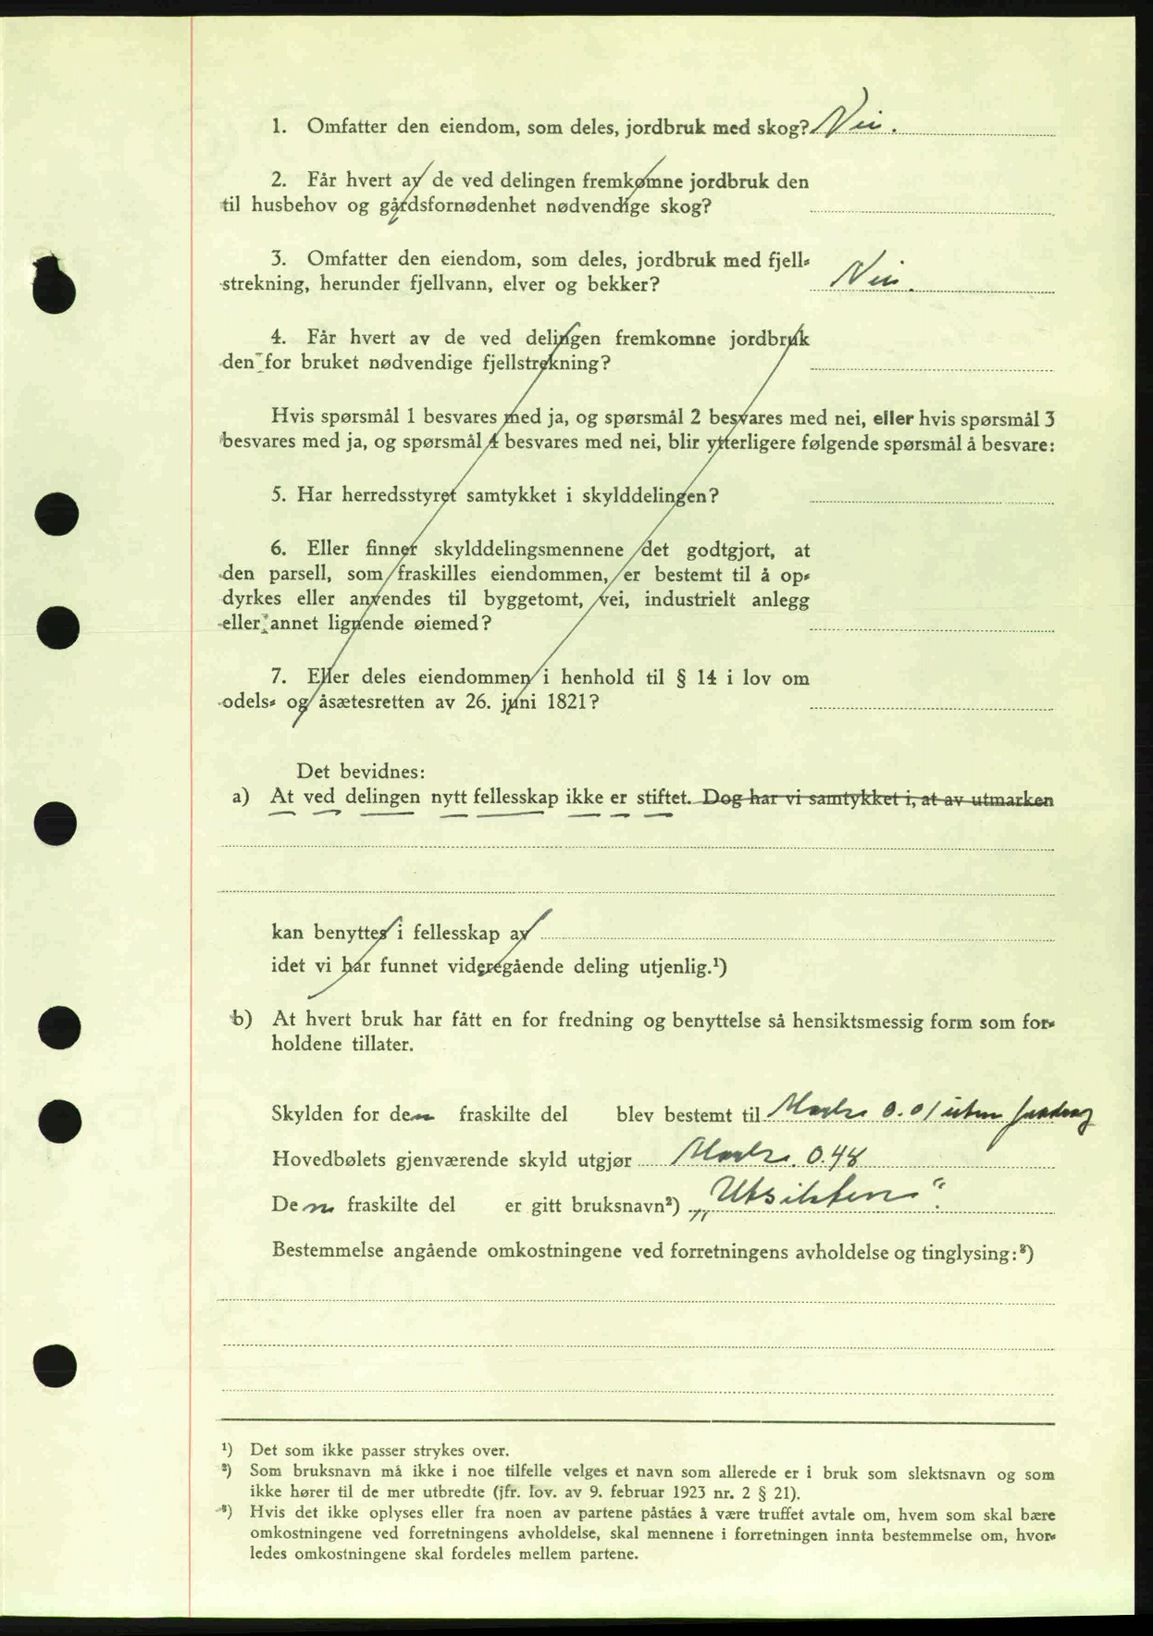 1. Omfatter den eiendom, som deles, jordbruk med skog? Nei.
2. Får hvert av de ved delingen fremkomne jordbruk den
til husbehov og gårdsfornødenhet nødvendige skog?
3. Omfatter den eiendom, som deles, jordbruk med fjell-
strekning, herunder fjellvann, elver og bekker? Nei.
4. Får hvert av de ved delingen fremkomne jordbruk
den for bruket nødvendige fjellstrekning?
Hvis spørsmål 1 besvares med ja, og spørsmål 2 besvares med nei, eller hvis spørsmål 3
besvares med ja, og spørsmål 4 besvares med nei, blir ytterligere følgende spørsmål å besvare:
5. Har herredsstyret samtykket i skylddelingen?
6. Eller finner skylddelingsmennene det godtgjort, at
den parsell, som fraskilles eiendommen, er bestemt til å op-
dyrkes eller anvendes til byggetomt, vei, industrielt anlegg
eller annet lignende øiemed?
7. Eller deles eiendommen i henhold til § 14 i lov om
odels- og åsætesretten av 26. juni 1821?
Det bevidnes:
a) At ved delingen nytt fellesskap ikke er stiftet. Dog har vi samtykket i, at av utmarken
kan benyttes i fellesskap av
idet vi har funnet videregående deling utjenlig.¹)
b) At hvert bruk har fått en for fredning og benyttelse så hensiktsmessig form som for-
holdene tillater.
Skylden for den fraskilte del blev bestemt til Mark 0.01 uten fradrag
Hovedbølets gjenværende skyld utgjør Mark 0.48
Den fraskilte del er gitt bruksnavn²) „Utsikten“.
Bestemmelse angående omkostningene ved forretningens avholdelse og tinglysing:³)
¹) Det som ikke passer strykes over.
²) Som bruksnavn må ikke i noe tilfelle velges et navn som allerede er i bruk som slektsnavn og som
ikke hører til de mer utbredte (jfr. lov. av 9. februar 1923 nr. 2 § 21).
³) Hvis det ikke oplyses eller fra noen av partene påståes å være truffet avtale om, hvem som skal bære
omkostningene ved forretningens avholdelse, skal mennene i forretningen innta bestemmelse om, hvor-
ledes omkostningene skal fordeles mellem partene.